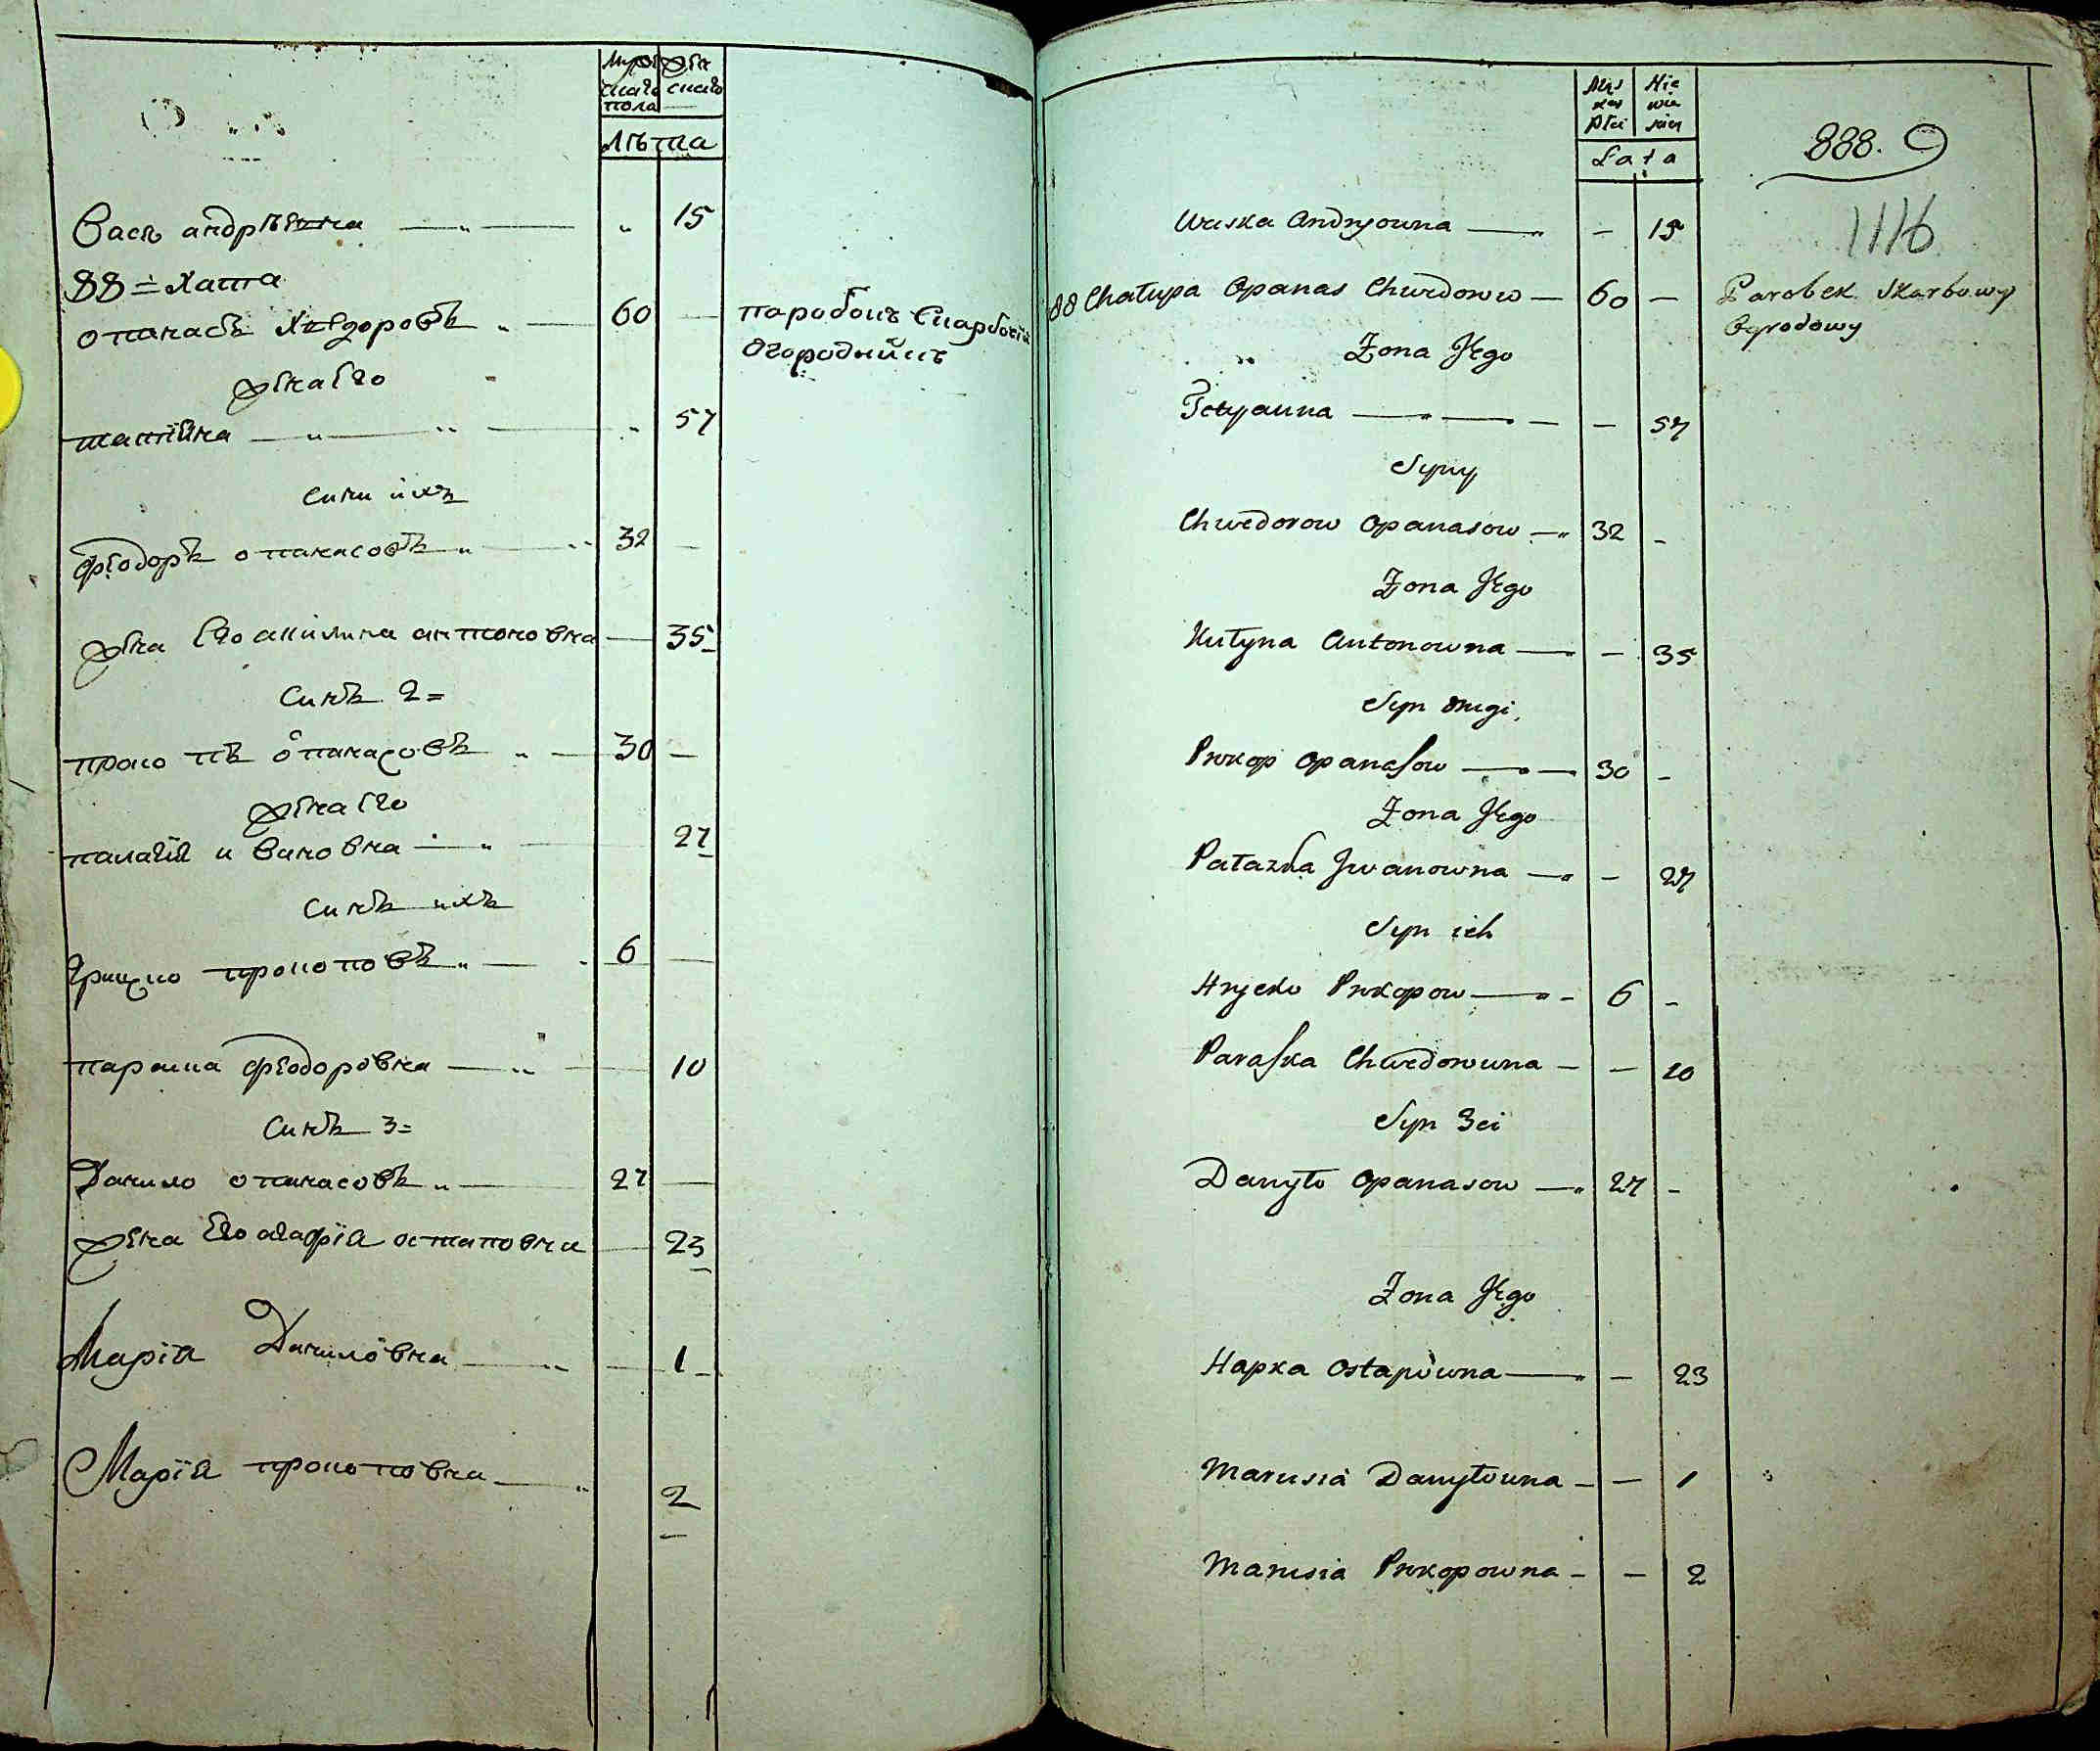 Муж Жен
скаго скаго
пола
Лѣта
Вася андрѣевна 15
88 = хата
опанасъ хведоровъ 60
паробокъ Скарбовій
Огородникъ
жена его
татіяна 57
сини ихъ
феодоръ опанасовъ 32
жена его акилина антоновна 35
Синъ 2=
прокопъ опанасовъ 30
жена его
палагія ивановна 27
Синъ ихъ
Грицко прокоповъ 6
параска феодоровна 10
Синъ 3=
Данило опанасовъ 27
жена его агафія остаповна 23
Марія Даниловна 1
Марія прокоповна 2
Męz Nie
kiey wie
płci skiey
Lata
888. 9
1116
Waska Andryowna — 15
88 Chałupa Opanas Chwedorow — 60 —
Parobek Skarbowy
Ogrodowy
Żona Jego
Tetyanna — — 57
Syny
Chwedorow Opanasow — 32 -
Żona Jego
Kułyna Antonowna — - 35
Syn drugi,
Prokop Opanasow — 30 -
Żona Jego
Pałazka Jwanowna — - 27
Syn ich
Hryćko Prokopow — 6 -
Paraska Chwedorowna — - 10
Syn 3ci
Danyło Opanasow — 27 -
Żona Jego
Hapka Ostapowna — - 23
Marusia Danyłowna - - 1
Marusia Prokopowna - - 2